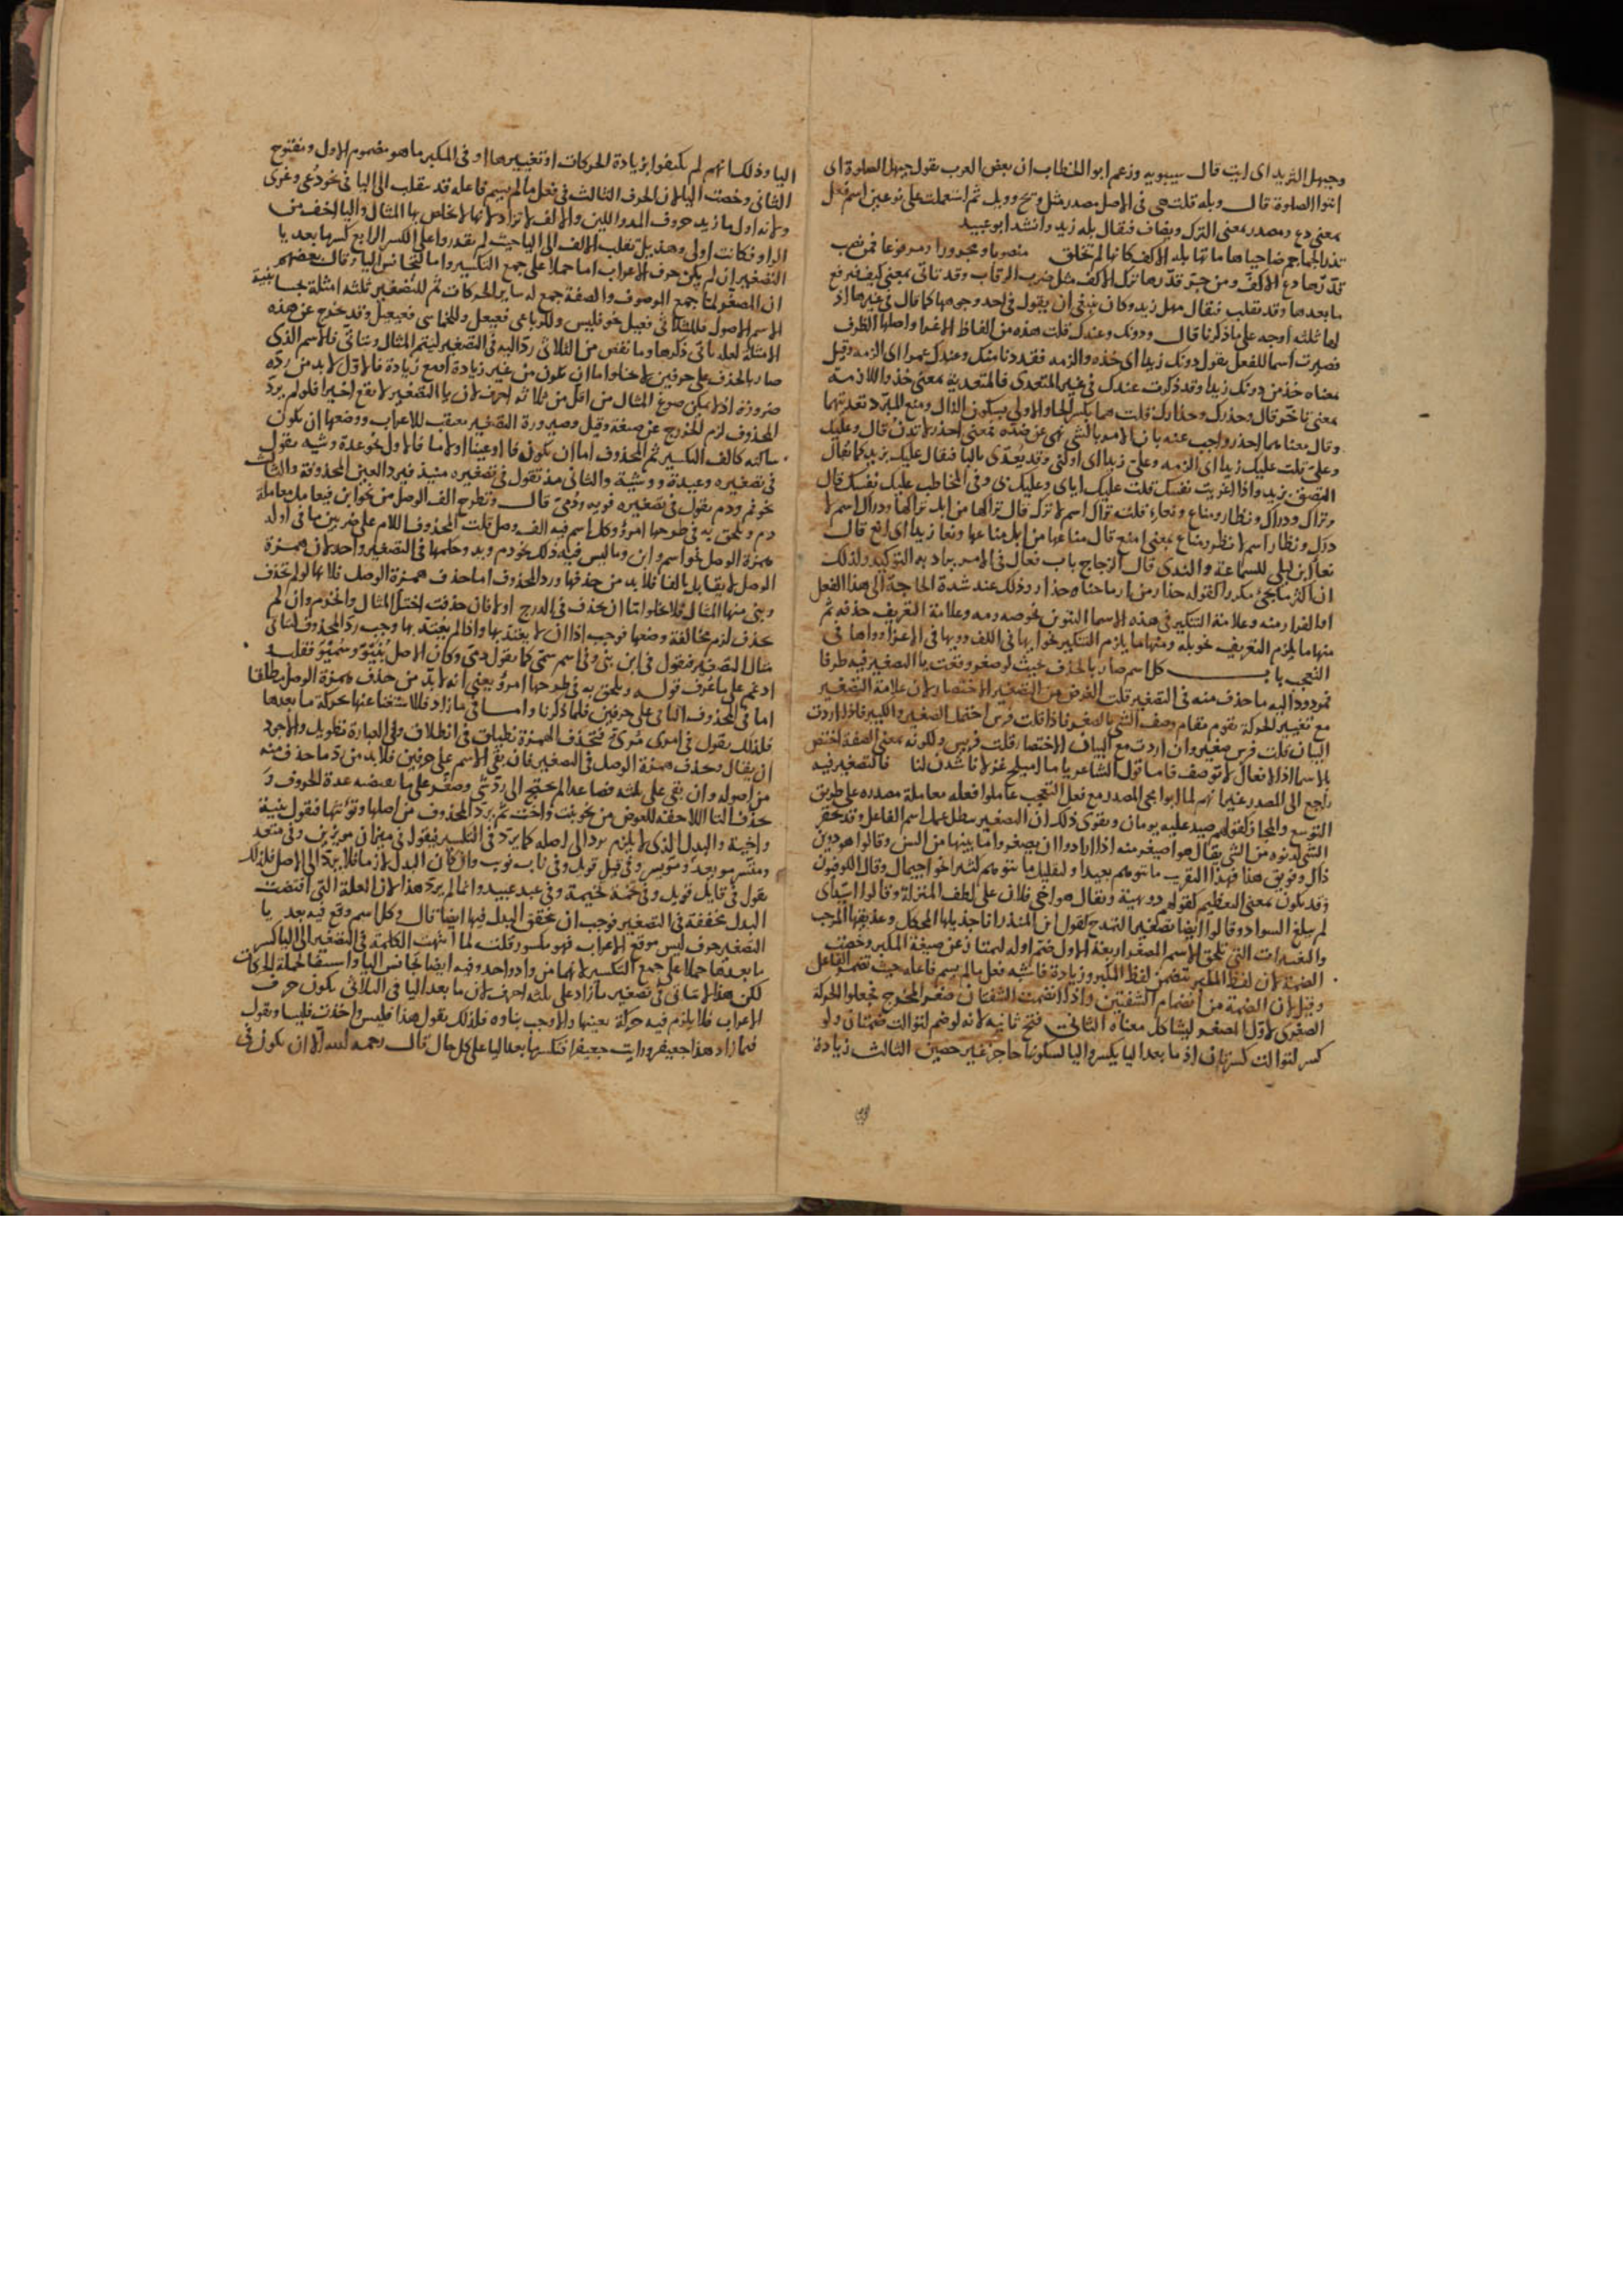 وحيهل الثريد اى ايت قال سيبويه وزعم ابو الخطاب ان بعض العرب يقول حيهل الصلوة اى
ائتوا الصلوة قال وبله قلت هى فى الاصل مصدر مثل ويح وويل ثم استعملت على نوعين اسم فعل
بمعنى دع ومصدر بمعنى الترك ويضاف فيقال بله زيد وانشد ابو عبيد
تذر الجماجم ضاحيا هاماتها بله الاكف كانها لم تخلق منصوبا ومجرورا ومرفوعا فمن نصب
قدرها دع الاكف ومن جر قدرها ترك الاكف مثل ضرب الرقاب وقد تاتى بمعنى كيف فيرفع
ما بعدها وقد تقلب فيقال بهل زيد وكان ينبغى ان يقول فى احد وجوهها كما قال فى غيرها اذ
لها ثلثة اوجه على ما ذكرنا قال ودونك وعندك قلت هذه من الفاظ الاغرا واصلها الظرف
فصيرت اسما للفعل يقول دونك زيدا اى خذه والزمه فقد دنا منك وعندك عمرا اى الزمه وقيل
معناه خذ من دونك زيدا وقد ذكرت عندك فى غير المتعدى فالمتعدية بمعنى خذ واللازمة
بمعنى تاخر قال وحذرك وحذارك قلت هما بكسر الحا والاولى بسكون الذال ومنع المبرد تعديتهما
وقال معناهما احذر واجيب عنه بان الامر بالشى نهى عن ضده فمعنى احذر لا تدن قال وعليك
وعلى قلت عليك زيدا اى الزمه وعلى زيدا اى اولنى وقد يعدى بالبا فيقال عليك بزيد كما يقال
التصق بزيد واذا اغريت نفسك قلت عليك اياى وعليك نى وفى المخاطب عليك نفسك قال
وتراك ودراك ونظار ومناع ونعاء قلت تراك اسم لاترك قال تراكها من ابل تراكها ودراك اسم لا
درك ونظار اسم لانظر ومناع بمعنى امنع قال مناعها من ابل مناعها ونعا زيدا اى انع قال
نعا ابن ليلى للسماحة والندى قال الزجاج باب فعال فى الامر يراد به التوكيد ولذلك
ان اكثر ما يجى مكررا كقوله حذار من ارماحنا حذار وذلك عند شدة الحاجة الى هذا الفعل
او الفرار منه وعلامة التنكير فى هذه الاسما التنوين نحو صه ومه وعلامة التعريف حذفه ثم
منها ما يلزم التعريف نحو بله ومنها ما يلزم التنكير نحو ايها فى الكف وويها فى الاغرا وواها فى
التعجب باب كل اسم صار بالحذف بحيث لو صغر وقعت يا التصغير فيه طرفا
فمردود اليه ما حذف منه فى التصغير قلت الغرض من التصغير الاختصار لان علامة التصغير
مع تغيير الحركة يقوم مقام وصف الشى بالصغر فاذا قلت فرس احتمل الصغير والكبير فاذا اردت
البيان قلت فرس صغير وان اردت مع البيان الاختصار قلت فريس ولكونه بمعنى الصفة اختص
بالاسما اذ الافعال لا توصف فاما قول الشاعر ياما اميلح غزلانا شدن لنا فالتصغير فيه
راجع الى المصدر غير انهم لما ابوا مجى المصدر مع فعل التعجب عاملوا فعله معاملة مصدره على طريق
التوسع والمجاز كقولهم صيد عليه يومان ويقوى ذلك ان التصغير يبطل عمل اسم الفاعل وقد يحقر
الشى لدنوه من الشى يقال هو اصيغر منه اذا ارادوا ان يصغروا ما بينهما من السن وقالوا هو دوين
ذاك وفويق هذا فهذا التقريب ما يتوهم بعيدا ولتقليل ما يتوهم كثيرا نحو اجيمال وقال الكوفيون
وقد يكون بمعنى التعظيم كقولهم دويهية ويقال هو اخى فلان على لطف المنزلة وقالوا اسيد اى
لم يبلغ السواد وقالوا ايضا تصغير التمدح كقول ابن المنذر انا جذيلها المحكك وعذيقها المرجب
والتغييرات التى تلحق الاسم المصغر اربعة الاول ضم اوله ليمتاز عن صيغة المكبر وخصت
الضمة لان لفظ المكبر يتضمن لفظ المكبر وزيادة فاشبه فعل ما لم يسم فاعله حيث تضمن الفاعل
وقيل لان الضمة من انضمام الشفتين واذا انضمت الشفتان صغر المخرج فجعلوا الحركة
الصغرى لاول المصغر ليشاكل معناه الثانى فتح ثانيه لانه لو ضم لتوالت ضمتان ولو
كسر لتوالت كسرتان اذ ما بعد اليا يكسر واليا لسكونها حاجز غير حصين الثالث زيادة
اليا وذلك انهم لم يكتفوا بزيادة الحركات او تغييرها او فى المكبر ما هو مضموم الاول ومفتوح
الثانى وخصت اليا لان الحرف الثالث فى فعل ما لم يسم فاعله قد ينقلب الى اليا فى نحو دعى وغزى
ولانه اول ما زيد حروف المد واللين والالف لا تزاد لانها لا خاص بها المثال واليا اخف من
الواو فكانت اولى وهذيل تقلب الالف الى اليا حيث لم يقدروا على الكسر الرابع كسر ما بعد يا
التصغير ان لم يكن حرف الاعراب اما حملا على جمع التكسير واما لتجانس اليا وقال بعضهم
ان المصغر لما جمع الموصوف والصفة جمع له ساير الحركات ثم للتصغير ثلثة امثلة بحسب ابنية
الاسم الاصول فللثلاثى فعيل نحو فليس وللرباعى فعيعل وللخماسى فعيعيل وقد يخرج عن هذه
الامثلة لعلة ياتى ذكرها وما نقص من الثلاثى رد اليه فى التصغير ليتم المثال ويتاتى فالاسم الذى
صار بالحذف على حرفين لا يخلوا اما ان يكون من غير زيادة او مع زيادة فالاول لا بد من رده
ضرورة اذ لا يمكن صوغ المثال من اقل من ثلاثة احرف لان يا التصغير لا يقع اخيرا فلو لم يرد
المحذوف لزم الخروج عن صيغة وقيل وصيرورة التصغير بعقب للاعراب ووضعها ان يكون
ساكنه كالف التكسير ثم المحذوف اما ان يكون فا او عينا او لاما فالاول نحو عدة وشية يقول
فى تصغيره وعيدة ووشية والثانى مذ تقول فى تصغيره منيذ فيرد العين المحذوفة والثالث
نحو فم ودم يقول فى تصغيره فويه ودمى قال وتطرح الف الوصل من نحو ابن فيعامل معاملة
دم ويلحق به فى طرحها امرؤ وكل اسم فيه الف وصل قلت المحذوف اللام على ضربين ما فى اوله
همزة الوصل نحو اسم وابن وما ليس فيه ذلك نحو دم ويد وحكمها فى التصغير واحد لان همزة
الوصل لا يقابل بالفا فلا بد من حذفها ورد المحذوف اما حذف همزة الوصل فلانها لو لم تحذف
وبنى منها المثال فلا يخلوا اما ان يحذف فى الدرج او لا فان حذفت اختل المثال وانخرم وان لم
يحذف لزم مخالفة وضعها فوجب اذا ان لا يعتد بها واذا لم يعتد بها وجب رد المحذوف لتاتى
مثال التصغير فيقول فى ابن بنى وفى اسم سمى كما يقول دمى وكان الاصل بنيو وسميو فقلب
ادغم على ما عرف قوله ويلحق به فى طرحها امرؤ يعنى انه لا بد من حذف همزة الوصل مطلقا
اما فى المحذوف الباقى على حرفين فلما ذكرنا واما فى ما زاد فللاستغنا عنها بحركة ما بعدها
فلذلك يقول فى امرئ مرىء فتحذف الهمزة نطيلق فى انطلاق وفى العبارة تطويل والاجود
ان يقال وتحذف همزة الوصل فى التصغير فان بقى الاسم على حرفين فلا بد من رد ما حذف منه
من اصوله وان بقى على ثلثة فصاعدا لم يحتج الى رد شى وصغر على ما يقتضيه عدة الحروف و
حذف التا اللاحقة للعوض من نحو بنت واخت ثم يرد المحذوف من اصلها وتؤنثها فيقول بنية
واخية والبدل الذى لا يلزم يرد الى اصله كما يرد فى التكسير فيقول فى ميزان مويزين وفى متعد
ومتسر مويعد ومييسر وفى قيل قويل وفى ناب نويب وان كان البدل لازما فلا يرد الى الاصل فلذلك
يقول فى قايل قويل وفى تخمة تخيمة وفى عيد عييد وانما لم يرد هذا لان العلة التى اقتضت
البدل محققة فى التصغير فوجب ان يحقق البدل فيها ايضا قال وكل اسم وقع فيه بعد يا
التصغير حرف ليس موقع الاعراب فهو مكسور قلت لما انتهت الكلمة فى التصغير الى اليا كسر
ما بعدها حملا على جمع التكسير لانهما من واد واحد وفيه ايضا تجانس اليا واستيفا لجملة الحركات
لكن هذا لا يتاتى فى تصغير ما زاد على ثلثة احرف لان ما بعد اليا فى الثلاثى يكون حرف
الاعراب فلا يلزم فيه حركة بعينها والا وجب بناوه فلذلك يقول هذا فليس واخذت فليسا ويقول
فيما زاد هذا جعيفر ورايت جعيفرا فتكسر ما بعد اليا على كل حال قال رحمه الله الا ان يكون فى